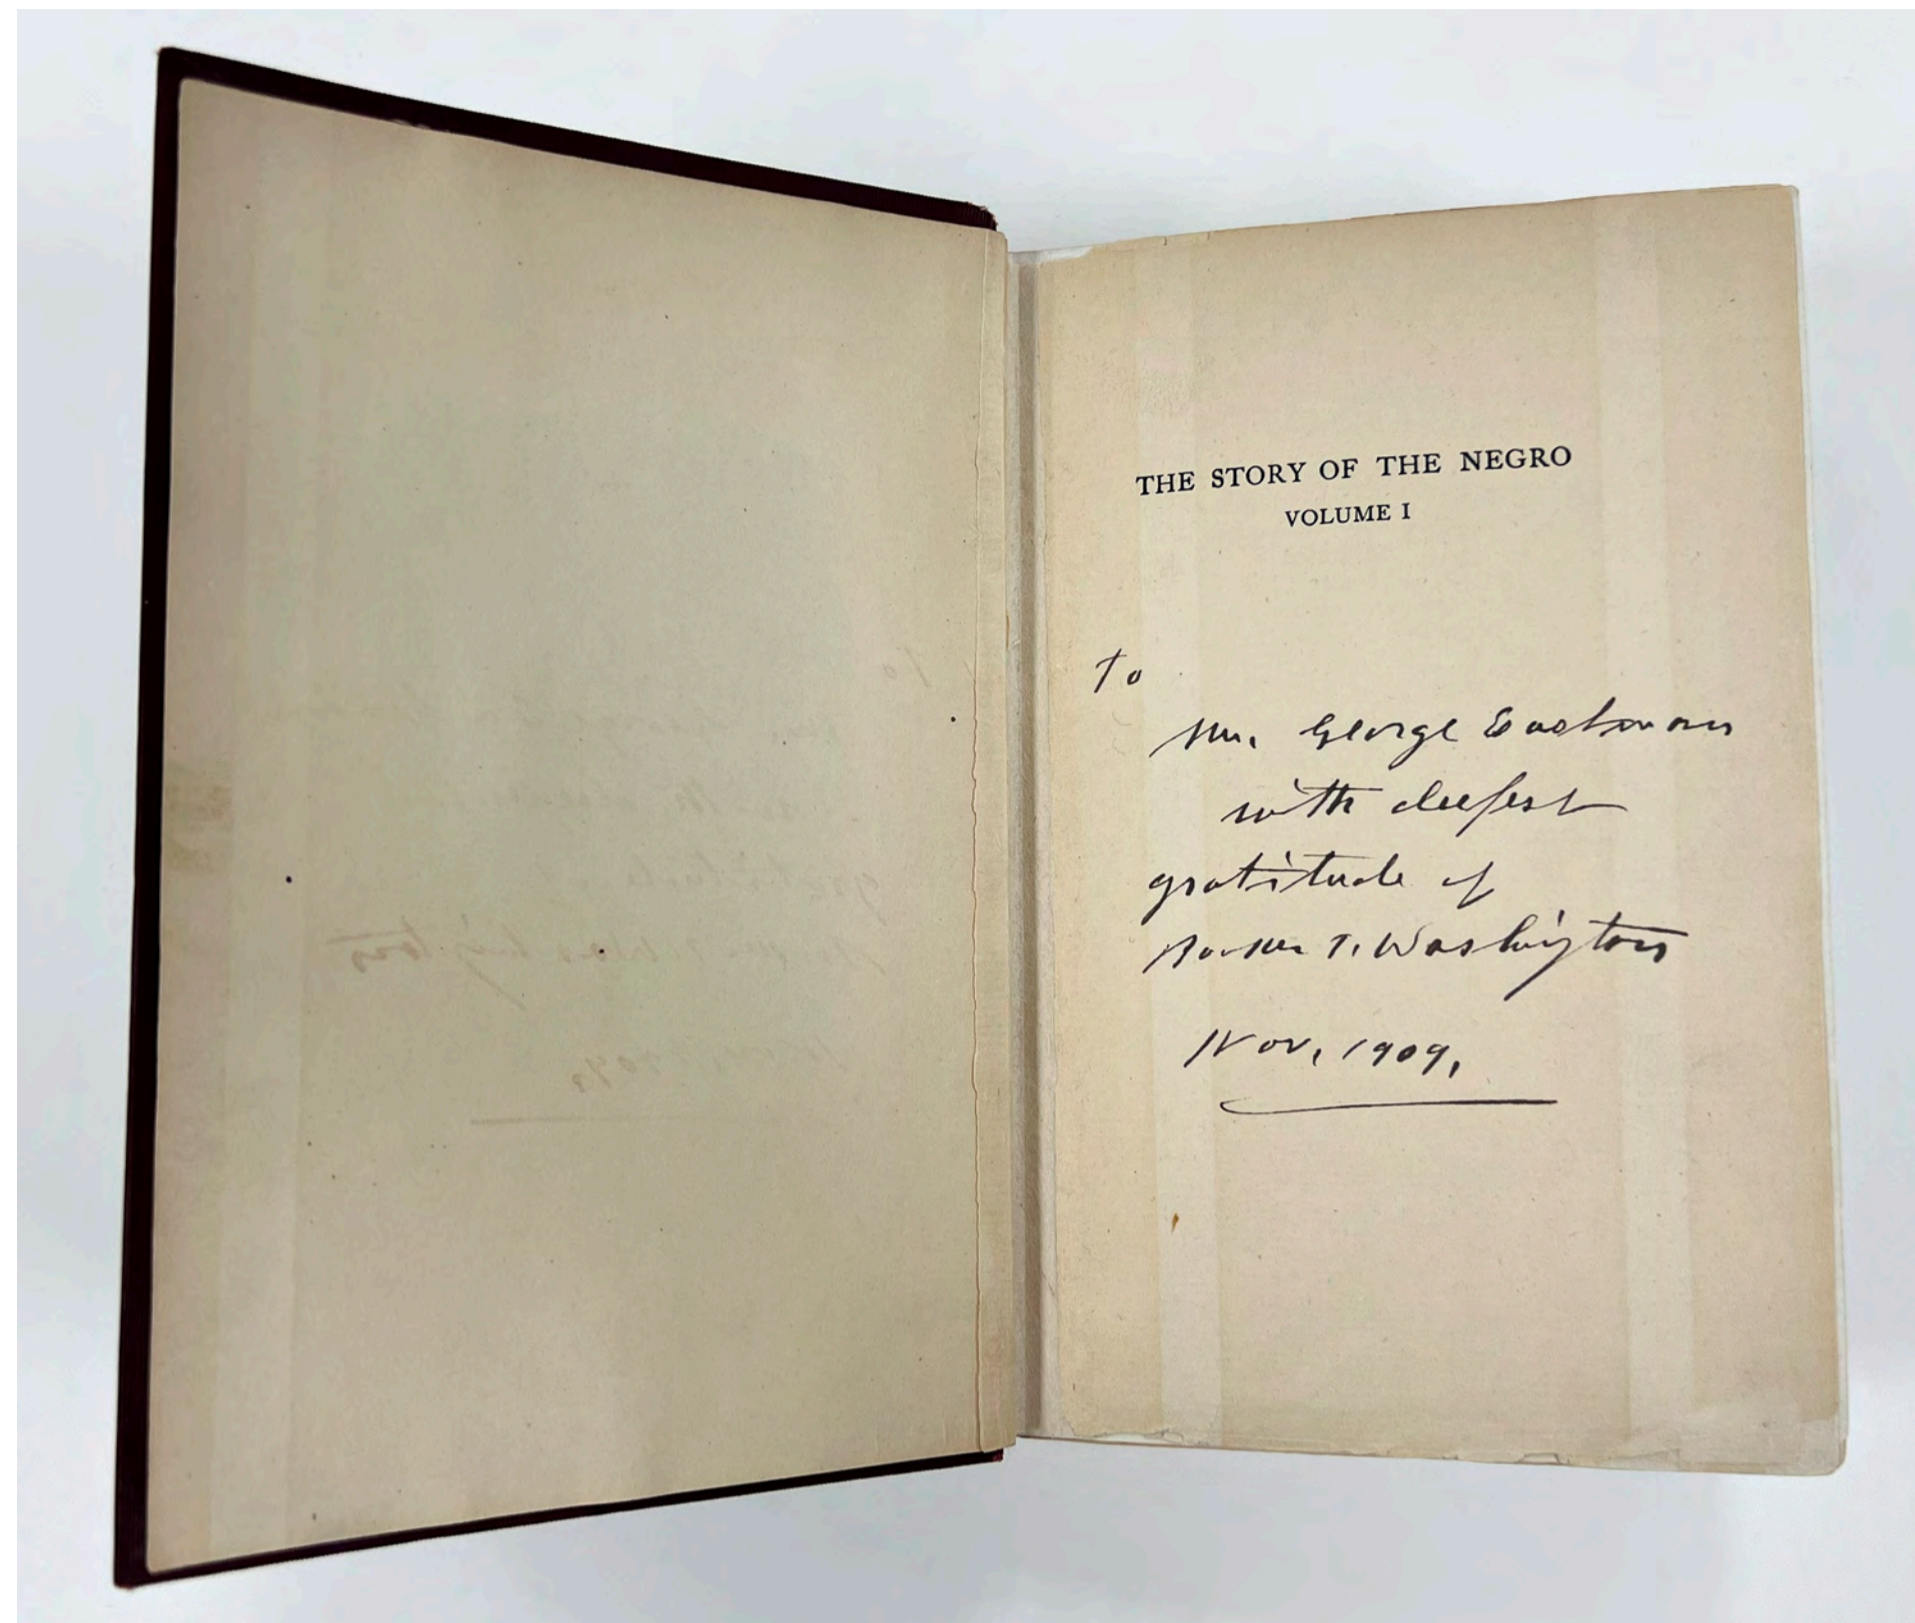 THE STORY OF THE NEGRO
VOLUME I
To
Mr. George Eastman
with deepest
gratitude of
Booker T. Washington
Nov. 1909.